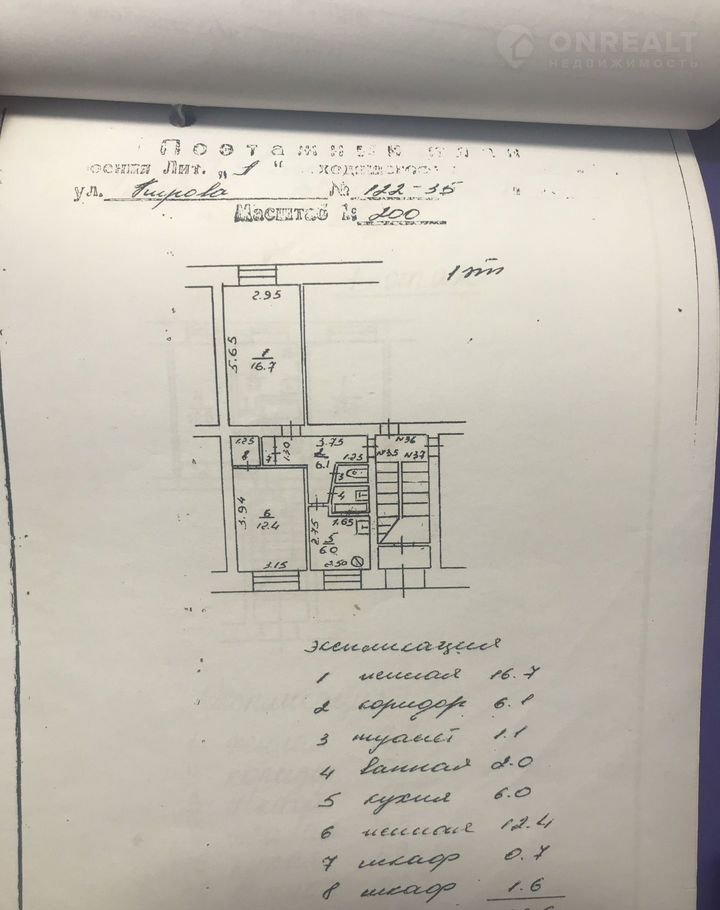 ONREALT
НЕДВИЖИМОСТЬ
Поэтажный план
Лит. „1"
ул. Кирова № 122-35
Масштаб 1: 200
1 эт
2.95
5.65
1
16.7
1.25
8
7
1.30
3.75
2
6.1
1.25
3
4
№35
№36
№37
3.94
6
12.4
2.75
1.65
5
6.0
3.15
2.50
экспликация
1 жилая 16.7
2 коридор 6.1
3 туалет 1.1
4 ванная 2.0
5 кухня 6.0
6 жилая 12.4
7 шкаф 0.7
8 шкаф 1.6